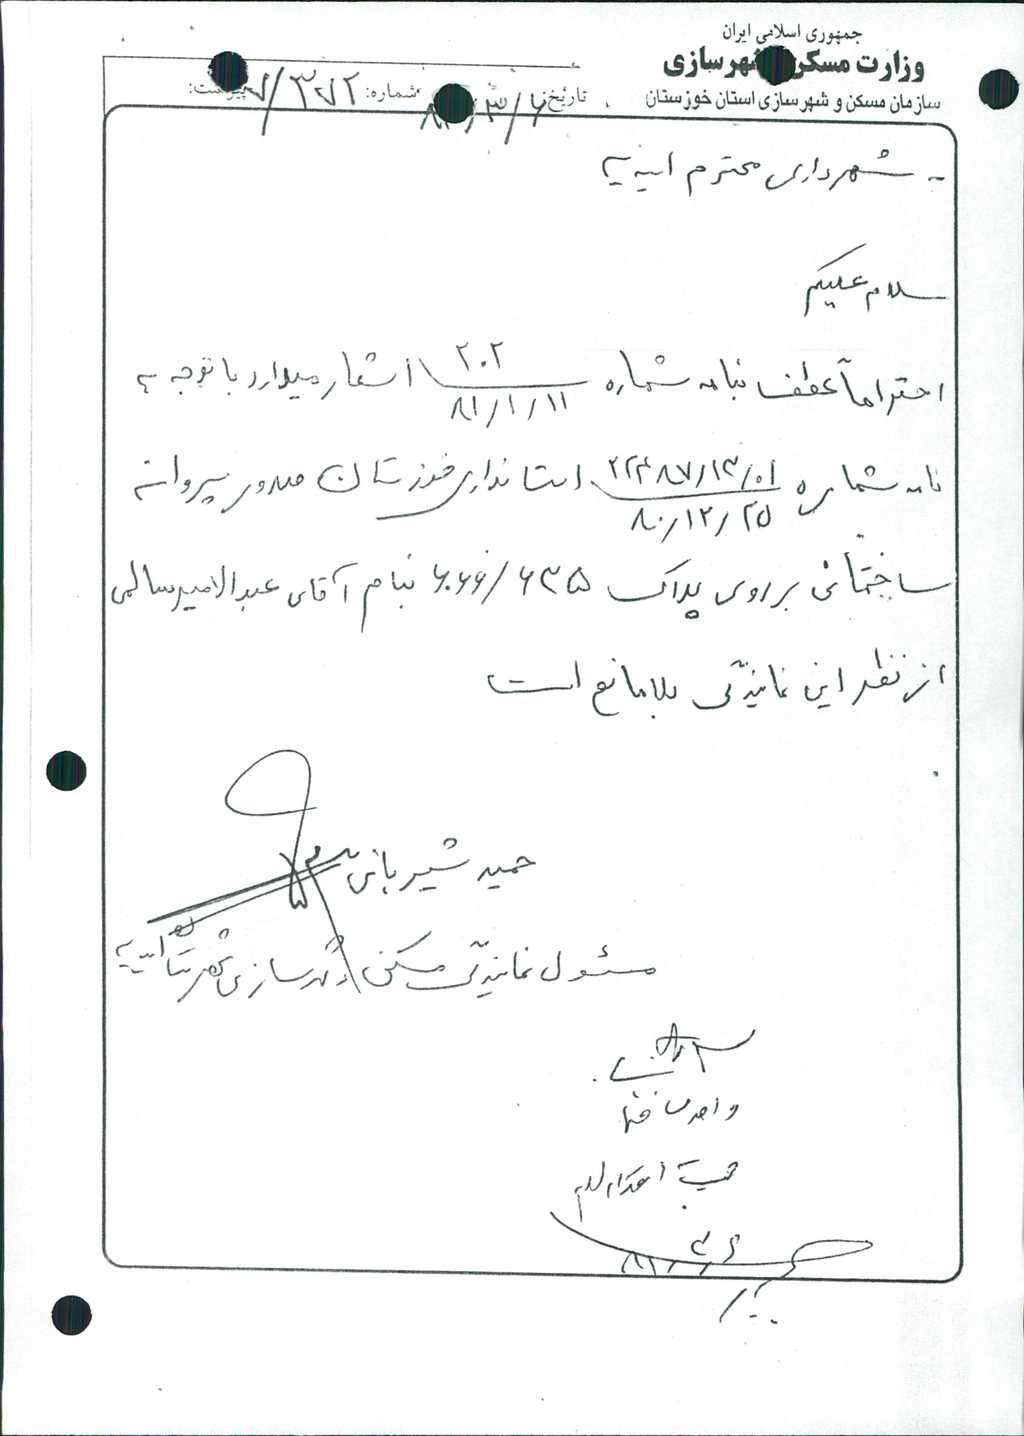 جمهوری اسلامی ایران
وزارت مسکن شهرسازی
سازمان مسکن و شهرسازی استان خوزستان
تاریخ: ۸۱/۳/۶
شماره: ۳۷۲/
پیوست:
شهرداری محترم امیدیه
سلام علیکم
احتراماً عطف بنامه شماره ۲۰۲ اشعار میدارد با توجه به
۸۱/۱/۱۱
نامه شماره ۲۲۴۸۷/۱۳/۰۱ استانداری خوزستان صدور پروانه
۸۰/۱۲/۲۵
ساختمانی بر روی پلاک ۶۰۶۶/۶۳۵ بنام آقای عبدالامیر سالمی
از نظر این نمایندگی بلامانع است
حمید شیربانی
مسئول نمایندگی مسکن و شهرسازی شهرستان امیدیه
واحد
جهت اقدام لازم
۸۱/۳/۶